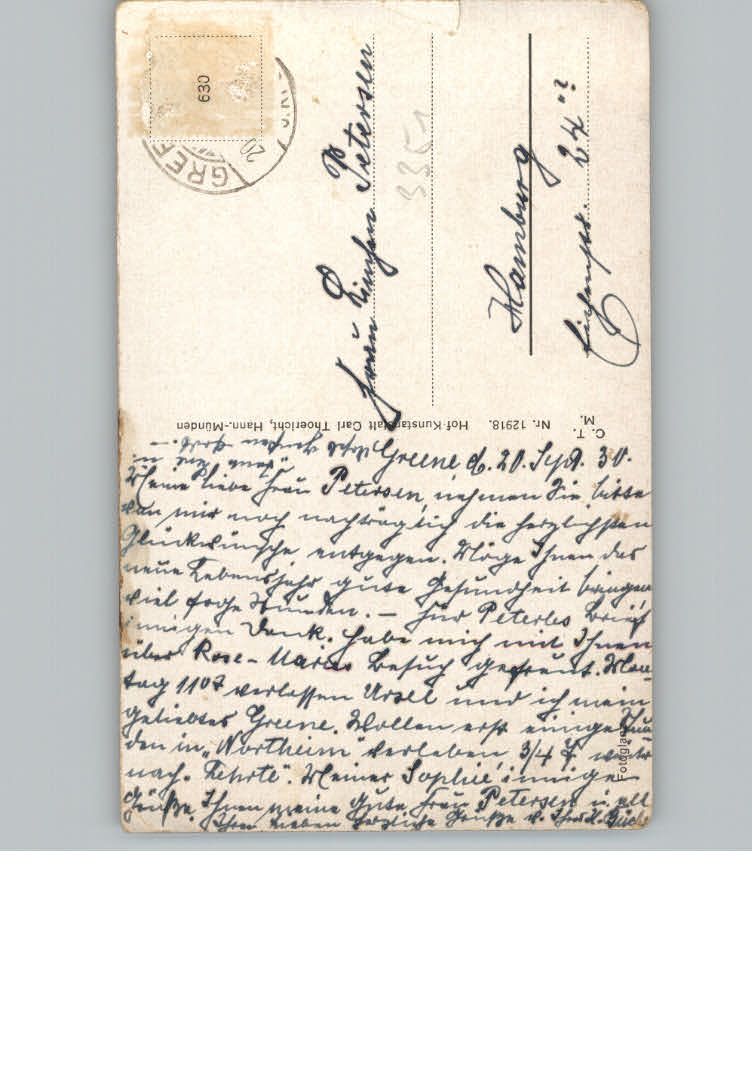 630
GREE
20
Frau Linchen Petersen
3351
Hamburg
24
C. T. M.
Nr. 12918. Hof-Kunstanstalt Carl Thoericht, Hann.-Münden
Fotoglanz
Greene d. 20. Sept. 30.
Meine liebe Frau Petersen, nehmen Sie bitte
von mir noch nachträglich die herzlichsten
Glückwünsche entgegen. Möge Ihnen das
neue Lebensjahr gute Gesundheit bringen
viel frohe Stunden. – Für Peterles Brief
innigen Dank. Habe mich mit Ihnen
über Rose-Maries Besuch gefreut. Mon
tag 1107 verlassen Ursel und ich mein
geliebtes Greene. Wollen erst einige Stun
den in "Northeim" verleben 3/4 7 weiter
nach "Lehrte". Meiner Sophie innige
Grüße. Ihnen meine gute Frau Petersen u. all
Ihren Lieben herzliche Grüße v. Ihrer